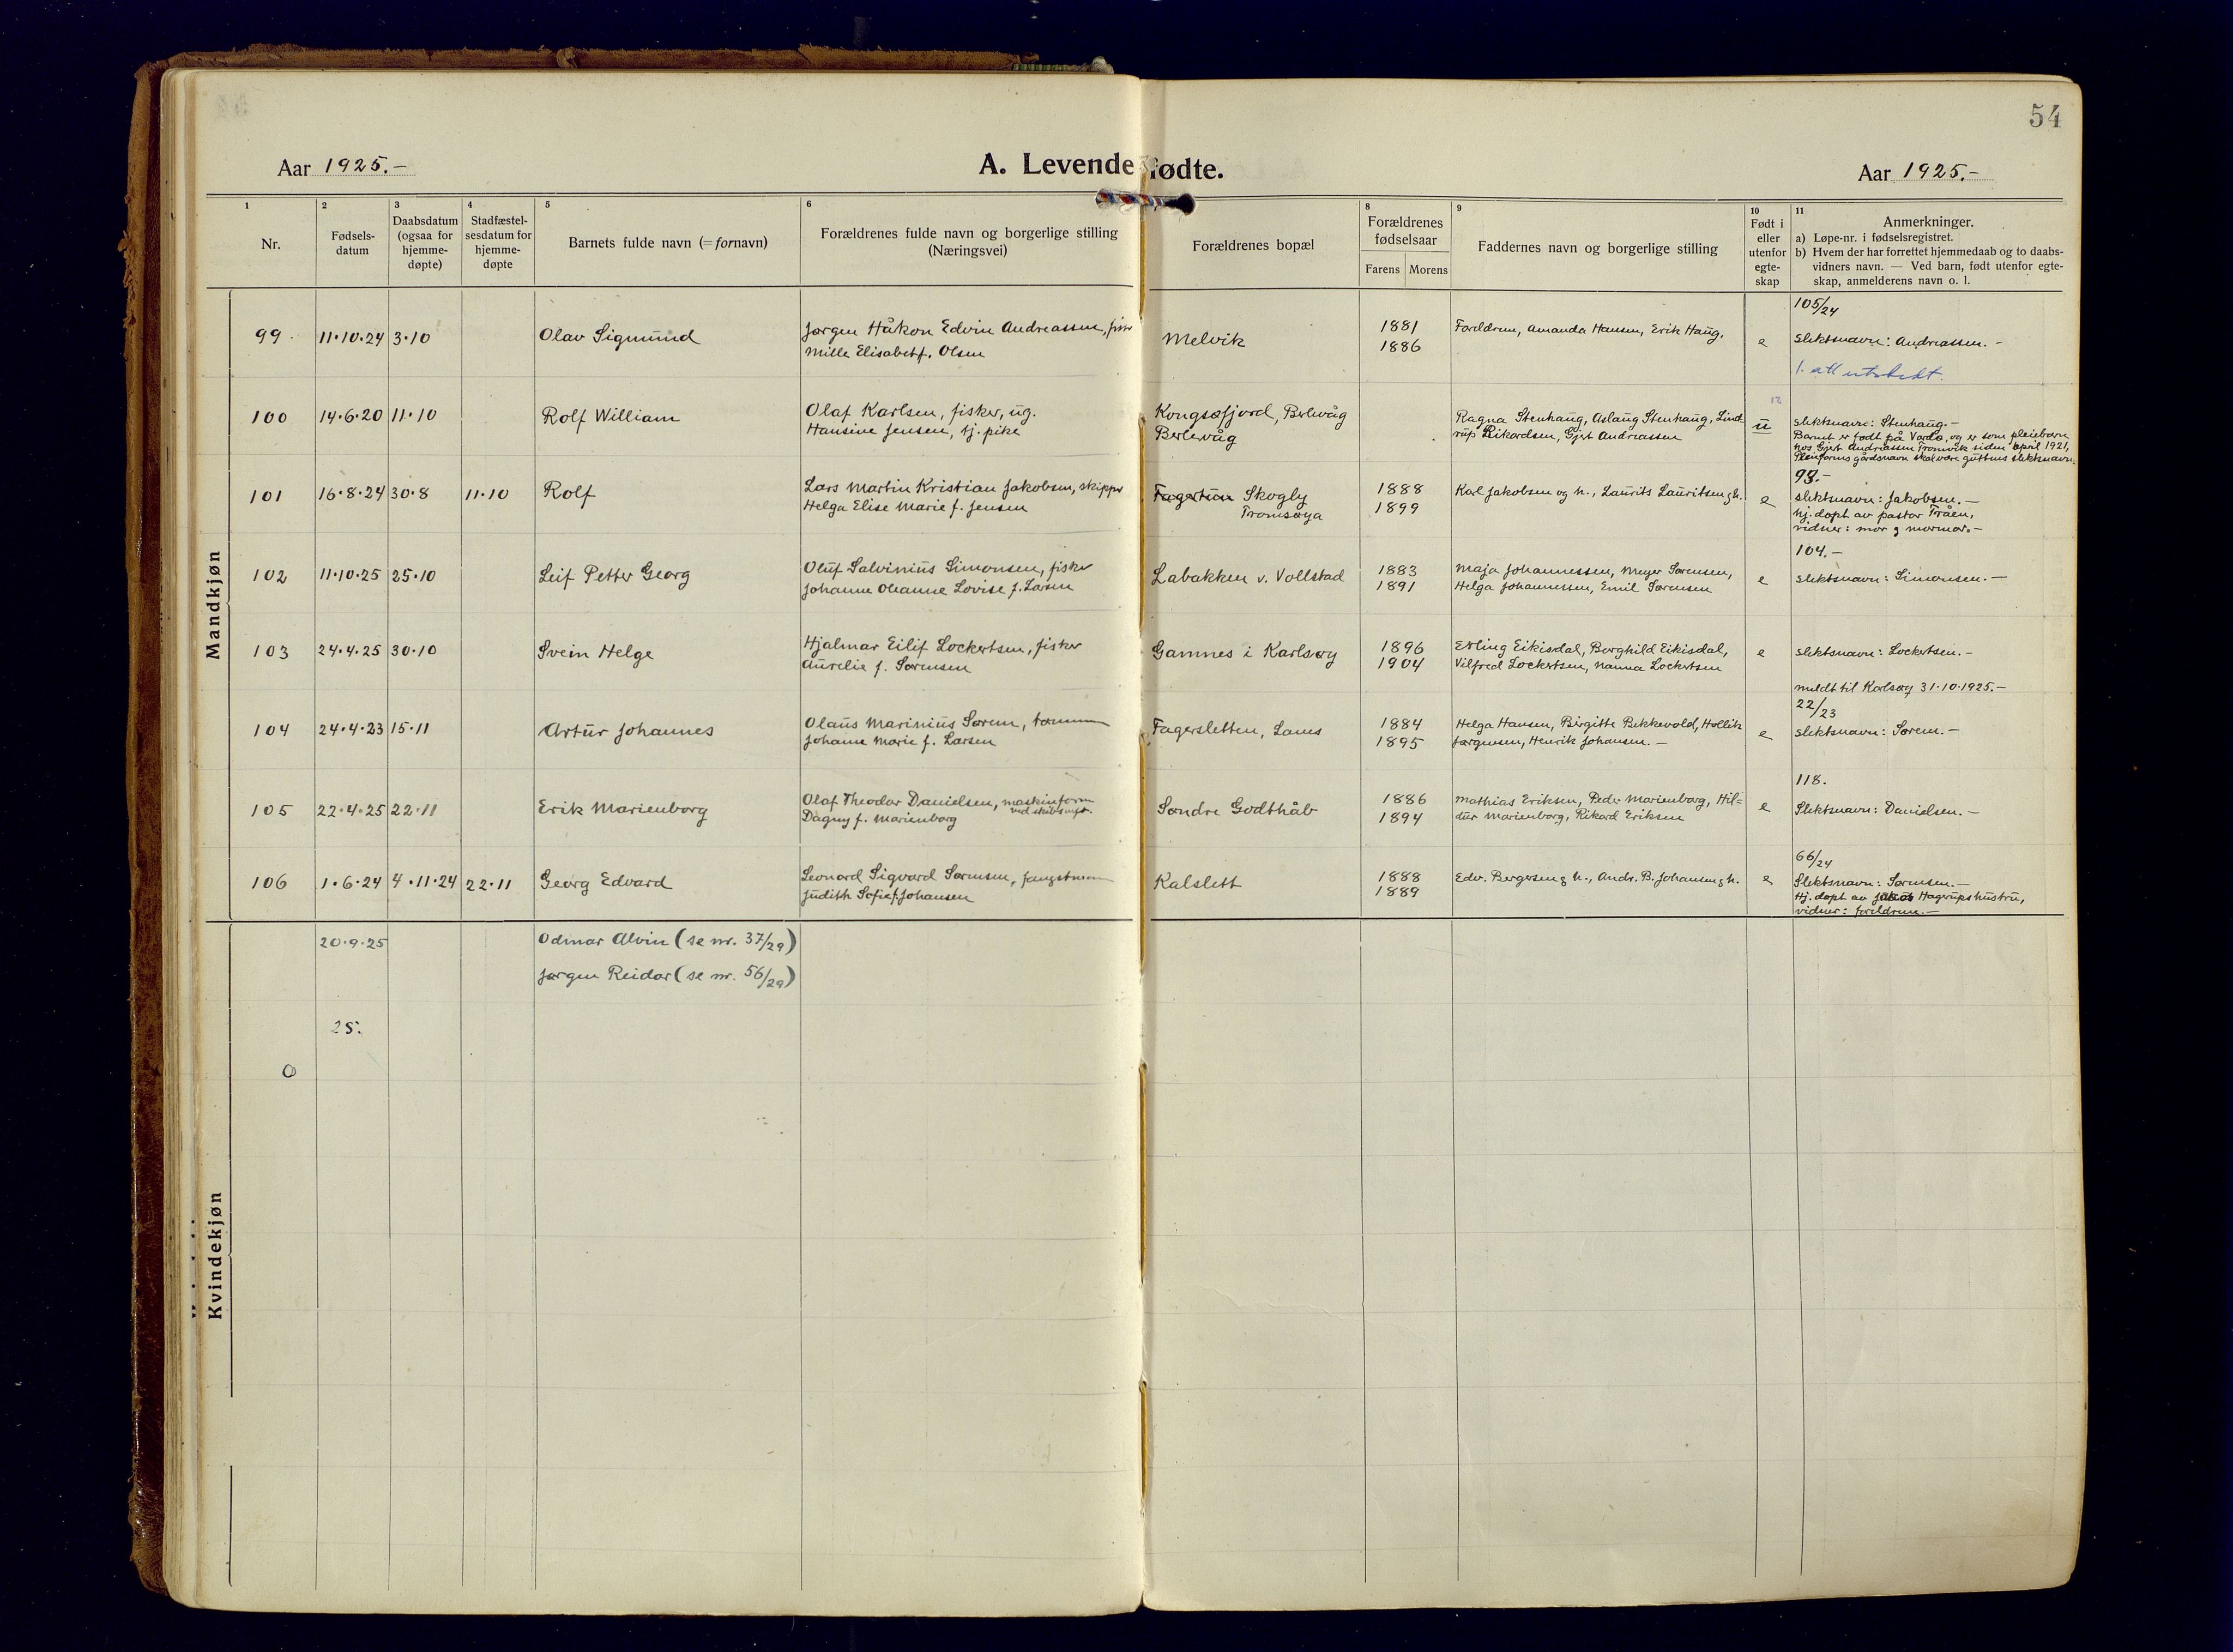 54
Aar 1925.-
A. Levende fødte.
Aar 1925.-
1
2
3
4
5
6
8
9
10
11
Nr.
Fødsels-
datum
Daabsdatum
(ogsaa for
hjemme-
døpte)
Stadfæstel-
sesdatum for
hjemme-
døpte
Barnets fulde navn (= fornavn)
Forældrenes fulde navn og borgerlige stilling
(Næringsvei)
Forældrenes bopæl
Forældrenes
fødselsaar
Farens Morens
Faddernes navn og borgerlige stilling
Født i
eller
utenfor
egte-
skap
Anmerkninger.
a) Løpe-nr. i fødselsregistret.
b) Hvem der har forrettet hjemmedaab og to daabs-
vidners navn. — Ved barn, født utenfor egte-
skap, anmelderens navn o. l.
Mandkjøn
99 11.10.24 3.10 Olav Sigmund
Jørgen Håkon Edvin Andreassen, fisker
Mille Elisabet f. Olsen
Melvik
1881
1886
Foreldrene, Amanda Hansen, Erik Haug.
e
105/24
slektsnavn: Andreassen. -
1. att utstedt.
100 14.6.20 11.10 Rolf William
Olaf Karlsen, fisker, ug.
Hansine Jensen, tj. pike
Kongsøfjord, Berlevåg
Berlevåg
Ragna Stenhaug, Aslaug Stenhaug, Lind
rup Rikardsen, Gjert Andreassen
u
slektsnavn: Stenhaug.-
Barnet er født på Vardø, og er som pleiebarn
hos Gjert Andreassen Tromvik siden april 1921,
Pleiefarens gårdsnavn skal være guttens slektsnavn.
101 16.8.24 30.8 11.10 Rolf
Lars Martin Kristian Jakobsen, skipper
Helga Elise Marie f. Jensen
Fagertun Skogly
Tromsøya
1888
1899
Karl Jakobsen og h., Laurits Lauritsen g h.
e
93.-
slektsnavn: Jakobsen.-
hj. døpt av pastor Tråen,
vidner: mor g mormor.-
102 11.10.25 25.10 Leif Petter Georg
Oluf Salvinius Simonsen, fisker
Johanne Oleanne Lovise f. Larsen
Labakken v. Vollstad
1883
1891
Maja Johannessen, Meyer Sørensen,
Helga Johannessen, Emil Sørensen
e
104.-
slektsnavn: Simonsen.-
103 24.4.25 30.10 Svein Helge
Hjalmar Eilif Lockertsen, fisker
Aurelie f. Sørensen
Gamnes i Karlsøy
1896
1904
Erling Eikisdal, Borghild Eikisdal,
Vilfred Lockertsen, Nanna Lockertsen
e
slektsnavn: Lockertsen.-
meldt til Karlsøy 31.10.1925.-
104 24.4.23 15.11 Artur Johannes
Olaus Marinius Sørem,
Johanne Marie f. Larsen
Fagersletten, Lanes
1884
1895
Helga Hansen, Birgitte Bekkevold, Hollik
Jørgensen, Henrik Johansen.-
e
22/23
slektsnavn: Sørem.-
105 22.4.25 22.11 Erik Marienborg
Olaf Theodor Danielsen, maskinform
ved skibsverft.
Dagny f. Marienborg
Søndre Godthåb
1886
1894
Mathias Eriksen, Peder Marienborg, Hil=
dur Marienborg, Rikard Eriksen
e
118.
Slektsnavn: Danielsen.-
106 1.6.24 4.11.24 22.11 Georg Edvard
Leonard Sigvard Sørensen, fangstmann
Judith Sofie f. Johansen
Kalslett
1888
1889
Edv. Bergersen g h., Andr. B. Johansen g h.
e
66/24
Slektsnavn: Sørensen.-
Hj. døpt av Jakob Hagerups hustru,
vidner: foreldrene.-
20.9.25 Odmar Alvin (se nr. 37/29)
Jørgen Reidar (se nr. 56/29)
25.
0
Kvindekjøn